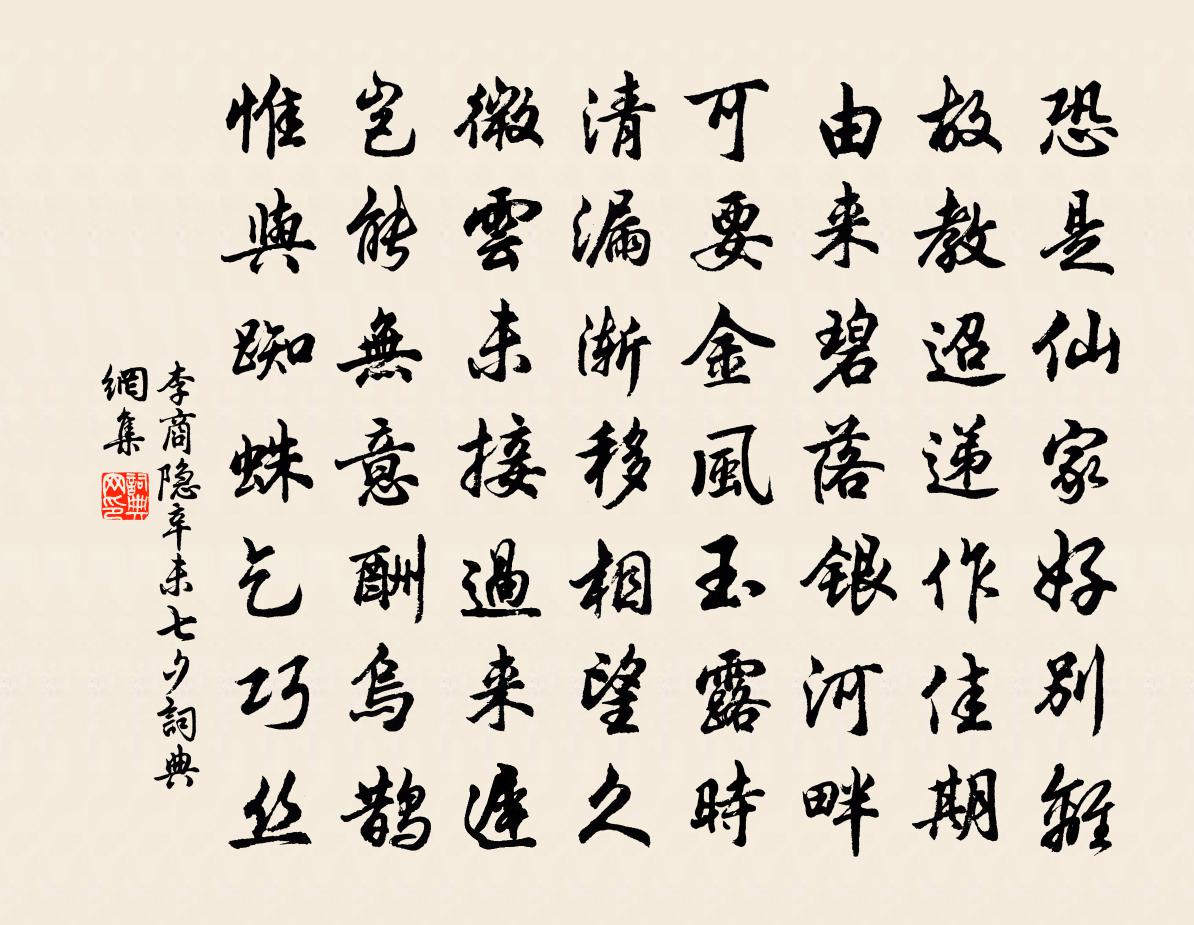 恐是仙家好別離
故教迢遞作佳期
由来碧落銀河畔
可要金風玉露時
清漏渐移相望久
微雲未接過来遲
豈能無意酬烏鵲
惟與蜘蛛乞巧丝
李商隐辛未七夕詞典
網集
詞典
网印